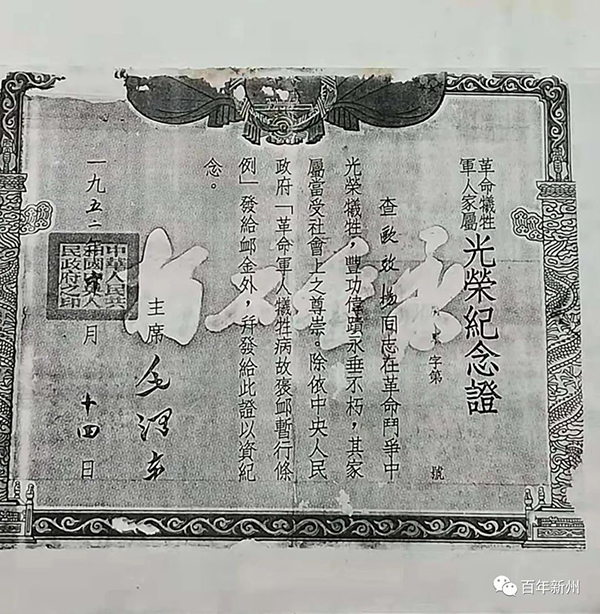 革命犧牲
軍人家屬
光榮紀念證
字第 號
查 同志在革命鬥爭中
光榮犧牲，豐功偉蹟永垂不朽，其家
屬當受社會上之尊崇。除依中央人民
政府「革命軍人犧牲病故褒卹暫行條
例」發給卹金外，并發給此證以資紀
念。
主席 毛澤東
一九五二年 月 十四日
中華人民共
和國中央人
民政府之印
百年新州